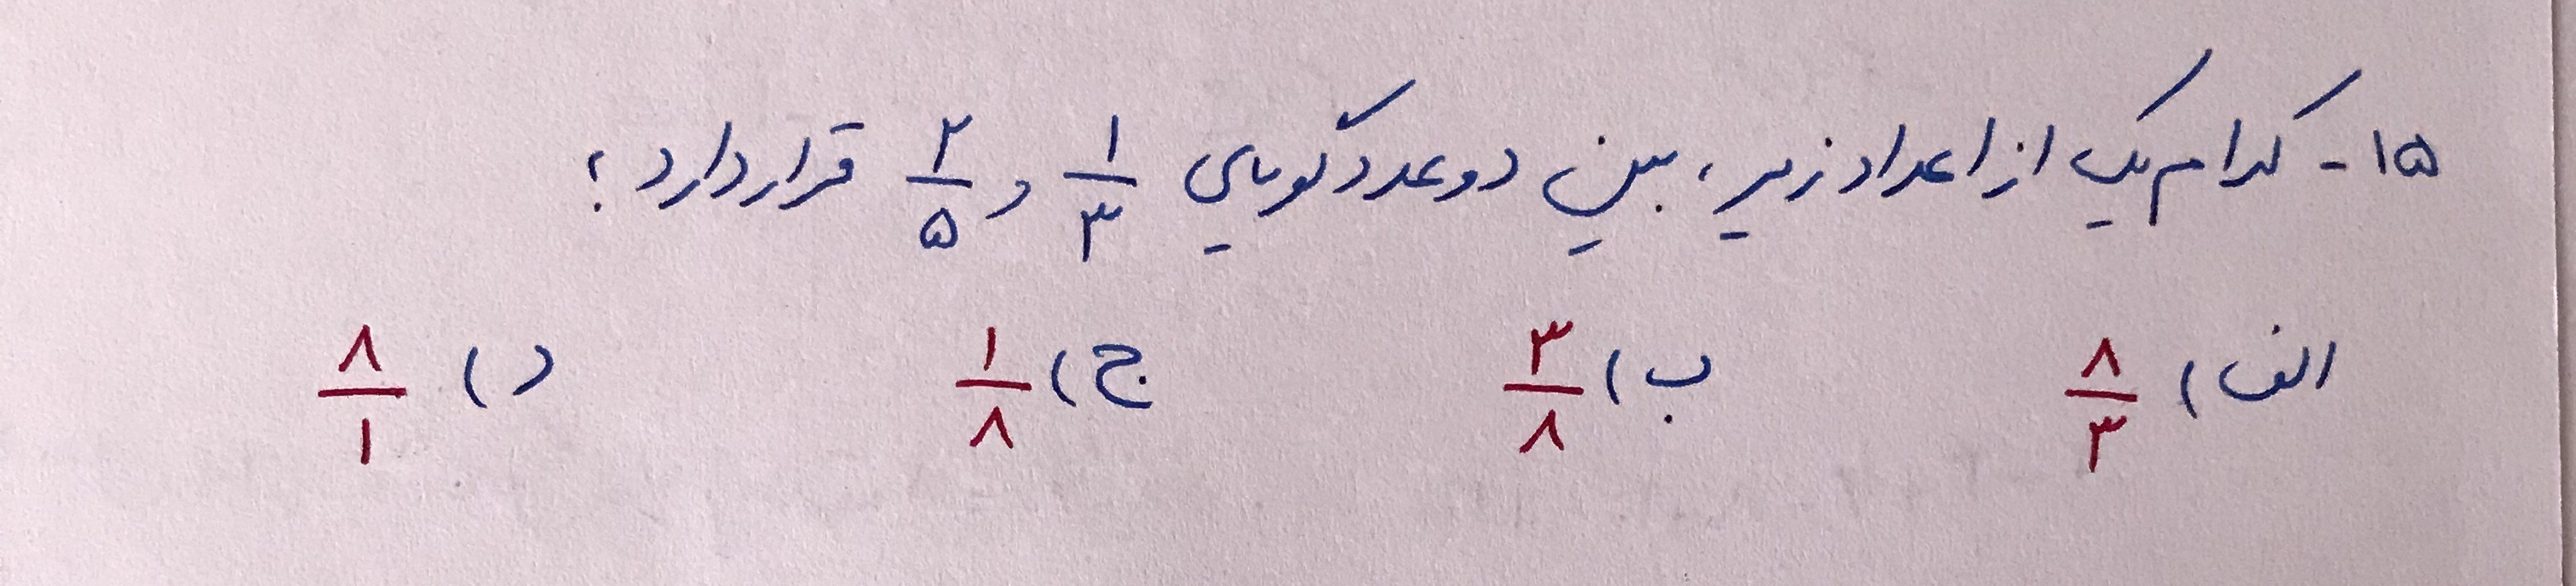 ۱۵- کدام یک از اعداد زیر، بین دو عدد گویای ۱/۳ و ۲/۵ قرار دارد؟
الف) ۸/۳ ب) ۳/۸ ج) ۱/۸ د) ۸/۱